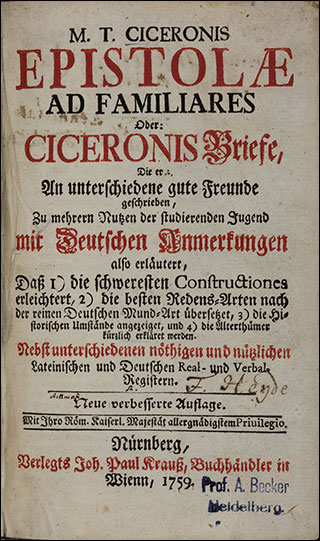 M. T. CICERONIS
EPISTOLÆ
AD FAMILIARES
Oder:
CICERONIS Briefe,
Die er
An unterschiedene gute Freunde
geschrieben,
Zu mehrern Nutzen der studierenden Jugend
mit Deutschen Anmerkungen
also erläutert,
Daß 1) die schweresten Constructiones
erleichtert, 2) die besten Redens-Arten nach
der reinen Deutschen Mund-Art übersetzet, 3) die Hi-
storischen Umstände angezeiget, und 4) die Alterthümer
kürzlich erkläret werden.
Nebst unterschiedenen nöthigen und nützlichen
Lateinischen und Deutschen Real- und Verbal-
Registern.
F. Heyde
Neue verbesserte Auflage.
Mit Ihro Röm. Kaiserl. Majestät allergnädigstem Privilegio.
Nürnberg,
Verlegts Joh. Paul Krauß, Buchhändler in
Wienn, 1759.
Prof. A. Becker
Heidelberg.